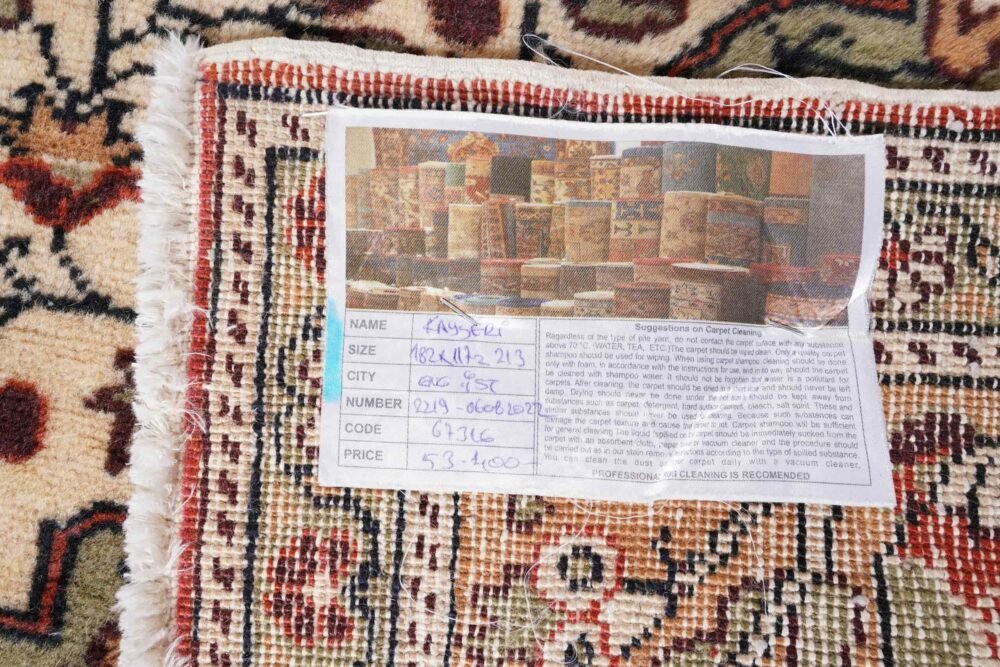 NAME KAYSERİ
SIZE 182x117= 213
CITY
NUMBER 2219 - 06082022
CODE 67316
PRICE
Suggestions on Carpet Cleaning
Regardless of the type of pile yarn, do not contact the carpet surface with any substance
above 70 °C. (WATER, TEA, ETC.)The carpet should be wiped clean. Only a quality carpet
shampoo should be used for wiping. When using carpet shampoo, cleaning should be done
only with foam, in accordance with the instructions for use, and in no way should the carpet
be cleaned with shampoo water. It should not be forgotten that water is a pollutant for
carpets. After cleaning, the carpet should be dried and should never be left
damp. Drying should never be done under the hot sun. should be kept away from
substances such as carpet, detergent, hard surface cleaners, bleach, salt spirit. These and
similar substances should never be used cleaning. Because such substances can
damage the carpet texture and cause the color to rot. Carpet shampoo will be sufficient
for general cleaning.The liquid spilled on carpet should be immediately sucked from the
carpet with an absorbent cloth, paper or vacuum cleaner and the procedure should
be carried out as in our stain removal according to the type of spilled substance.
You can clean the dust carpet daily with a vacuum cleaner.
PROFESSIONAL CLEANING IS RECOMENDED